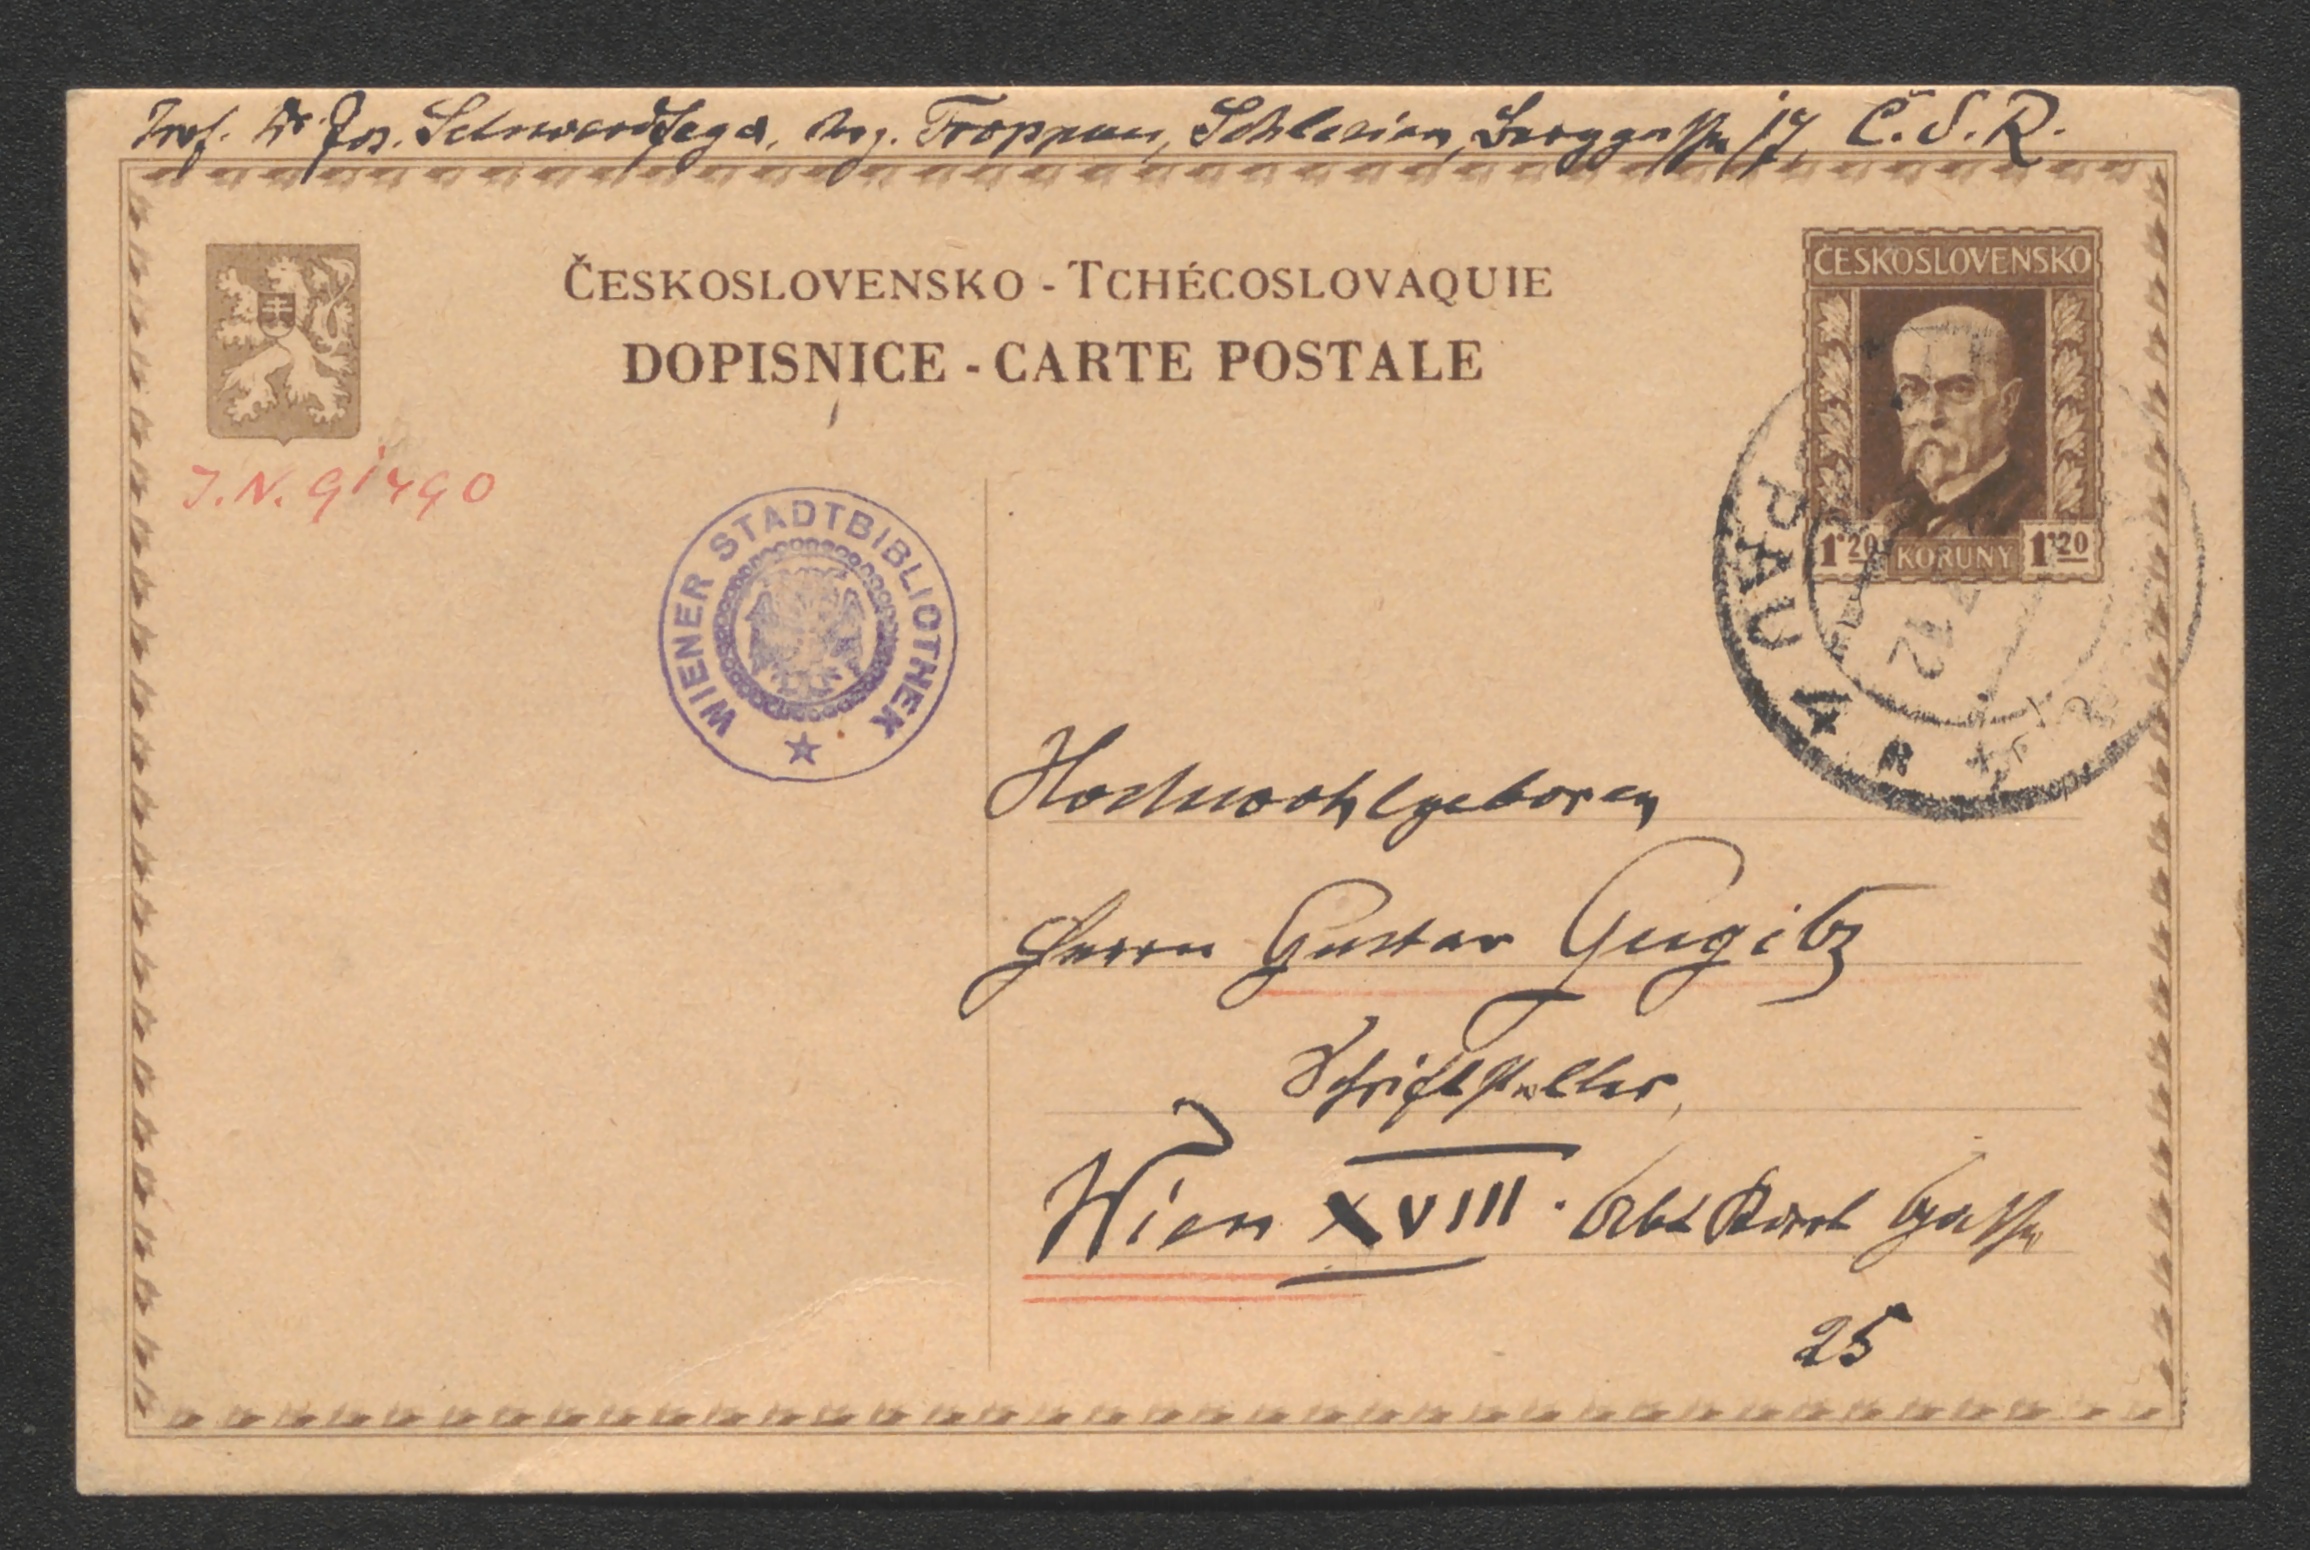 Prof. Dr Jos. Schwerdfeger, Troppau, Schlesien, Berggasse 17 Č.S.R.
ČESKOSLOVENSKO - TCHÉCOSLOVAQUIE
DOPISNICE - CARTE POSTALE
ČESKOSLOVENSKO
1'20 KORUNY 1'20
J.N. 91790
WIENER STADTBIBLIOTHEK
PAU 4
Hochwohlgeboren
Herrn Gustav Gugitz
Schriftsteller,
Wien XVIII. Gasse
25